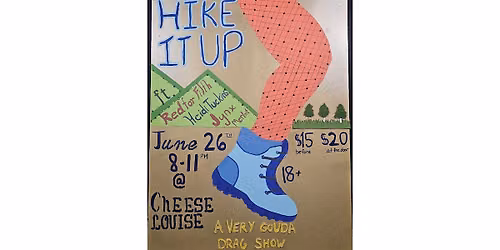 HIKE
IT UP
ft
Red for Filth
Acid Tucking
Jynx
June 26TH
$15 $20
before at the door
8-11PM
@
18+
CHEESE
LOUISE
A VERY GOUDA
DRAG SHOW